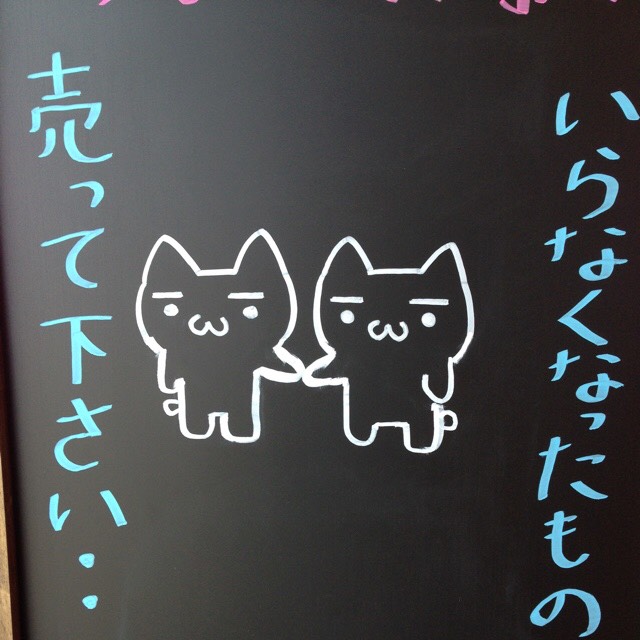 いらなくなったもの
売って下さい・・